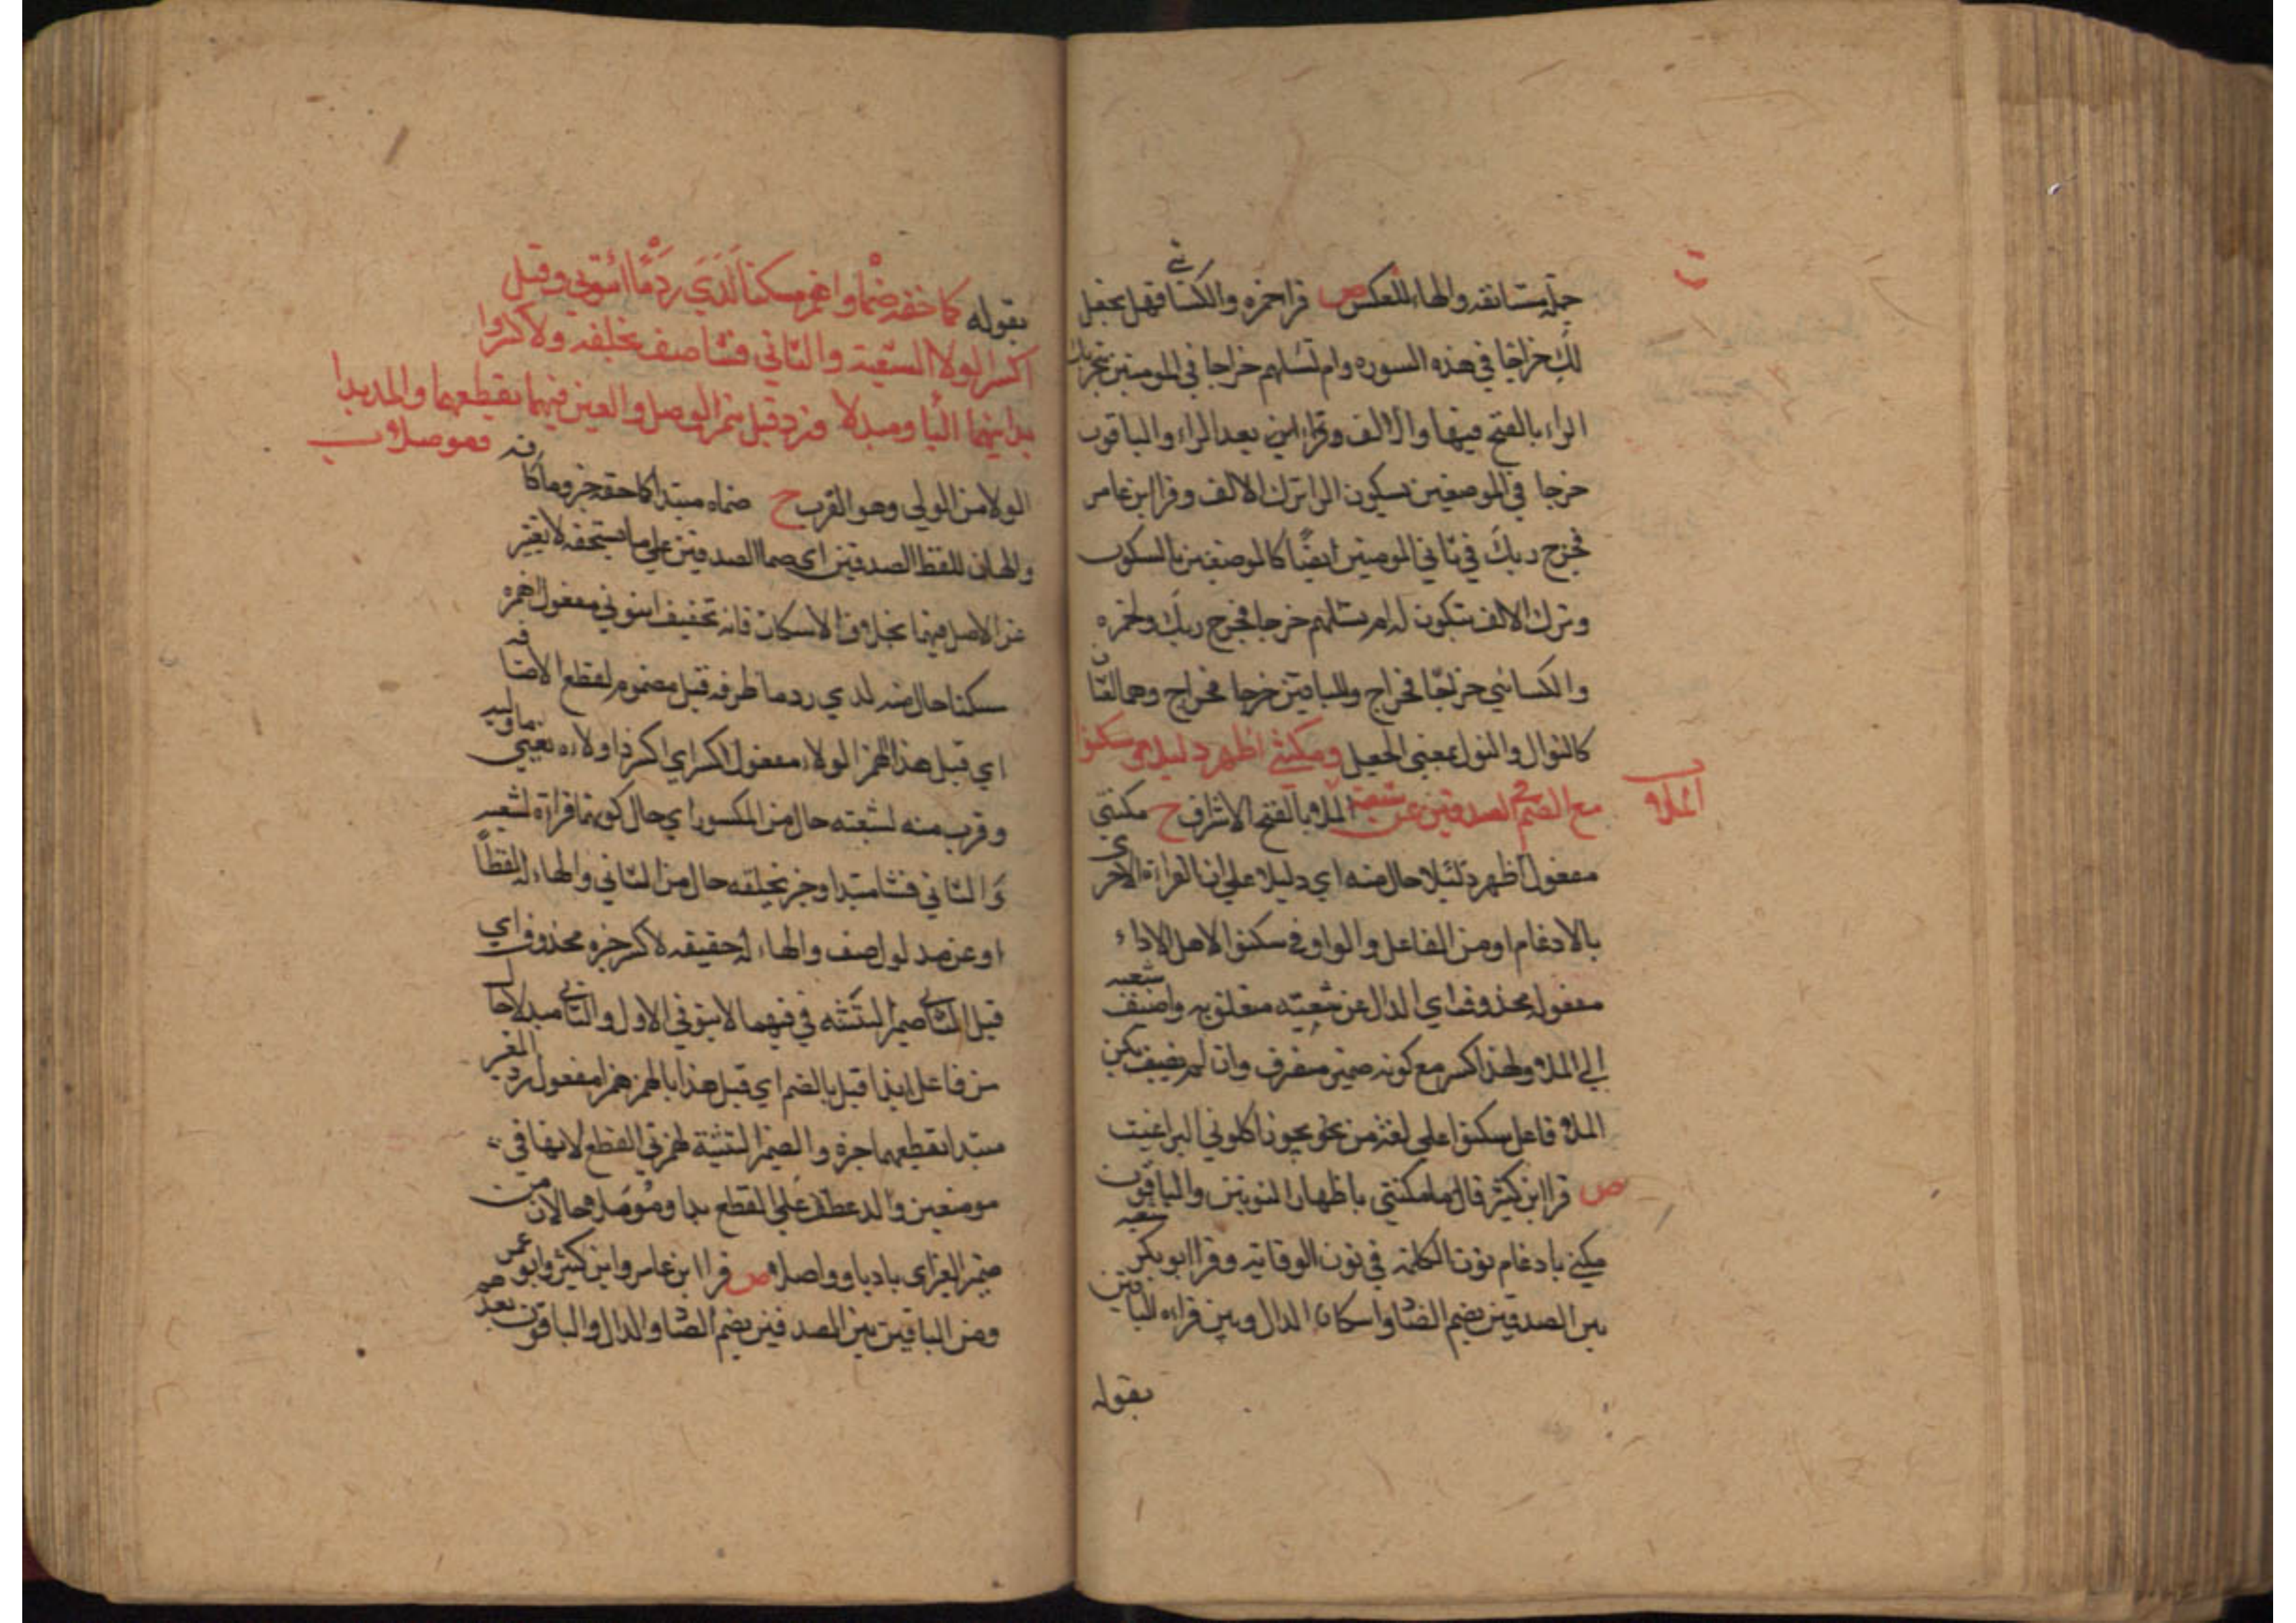 جملة مستانفه والهاء للعكس ص قرا حمزه والكسائي فهل نجعل
لك خراجا في هذه السوره وام تسئلهم خراجا في المومنين بتحريك
الراء بالفتح فيها والالف وقراءاين بعد الراء والباقون
خرجا في الموضعين بسكون الرا وترك الالف وقرا ابن عامر
فخرج ربك في ثاني المومنين ايضًا كالموضعين بالسكون
وترك الالف فتكون له ام تسئلهم خرجا فخرج ربك ولحمزه
والكسائي خراجًا فخراج وللباقين خرجا فخراج وهما لغتان
كالنوال والنول بمعنى الجعل ومكنني اظهر دليلا وسكنوا
مع الضم في الصدفين عن شعبة الملا
الملا بالفتح الاشراف ح مكنني
مفعول اظهر دليلا حال منه اي دليلا على ان القراءة الاخرى
بالادغام او من الفاعل والواو في سكنوا لاهل الاداء
مفعوله محذوف اي الدال عن شعبته متعلق به واضيف شعبه
الي الملا ولهذا كسر مع كونه غير منصرف وان لم يضف يكن
الملا فاعل سكنوا على لغة من نحو يجوز اكلوني البراغيث
ص قرا ابن كثير قال ما مكنني باظهار النونين والباقون
مكني بادغام نون الكلمة في نون الوقاية وقرا ابو بكر شعبه
بين الصدفين بضم الصاد واسكان الدال وبين قراءه الباقين
بقوله
بقوله كما حقه ضماه واهمز مسكنا لدى ردمًا ائتوني وقبل
اكسر الولا لشعبة والثاني فشا صف بخلفه ولا كسر وا
بدا فيهما اليا ومبدلا وزد قبل همز الوصل والغير فيهما بقطعهما والمد بدا
وموصلا ب
الولا من الولي وهو القرب ح ضماه مبتدا كما حقه خبر وما كافه
والهاء للفظ الصدفين اي ضما الصدفين على ما يستحقه لا تغير
عن الاصل فيهما بخلاف الاسكان فانه تخفيف ايتوني مفعول اهمزه
مسكنا حال منه لدي ردما ظرفه قبل مضموم لقطع الاضافه
اي قبل هذا الهمز الولا مفعول اكسر اي اكسر ذا ولاءه يعني ما وليه
وقرب منه لشعبته حال من المكسور اي حال كونها قراءة لشعبه
وَالثاني فشا مبتدا وخبر بخلفه حال من الثاني والهاء له لفظًا
او عن مدلول صف والهاء له حقيقه لا كسر خبره محذوف اي
قبل الثاني ضمير التثنيه في فيهما لايتوني الاول والثاني مبدلا حال
من فاعل ابدا قبل بالضم اي قبل هذا بالهمز همزا مفعول زد الغير
مبتدا بقطعهما خبره والضمير التثنية لهمزتي القطع لانها في
موضعين والمد عطف علي القطع بدا وموصلا حالان من
ضمير القراي باديا وواصلا ص قرا ابن عامر وابن كثير وابو عمر
ومن الباقين بين الصدفين بضم الصاد والدال والباقون بعد هم